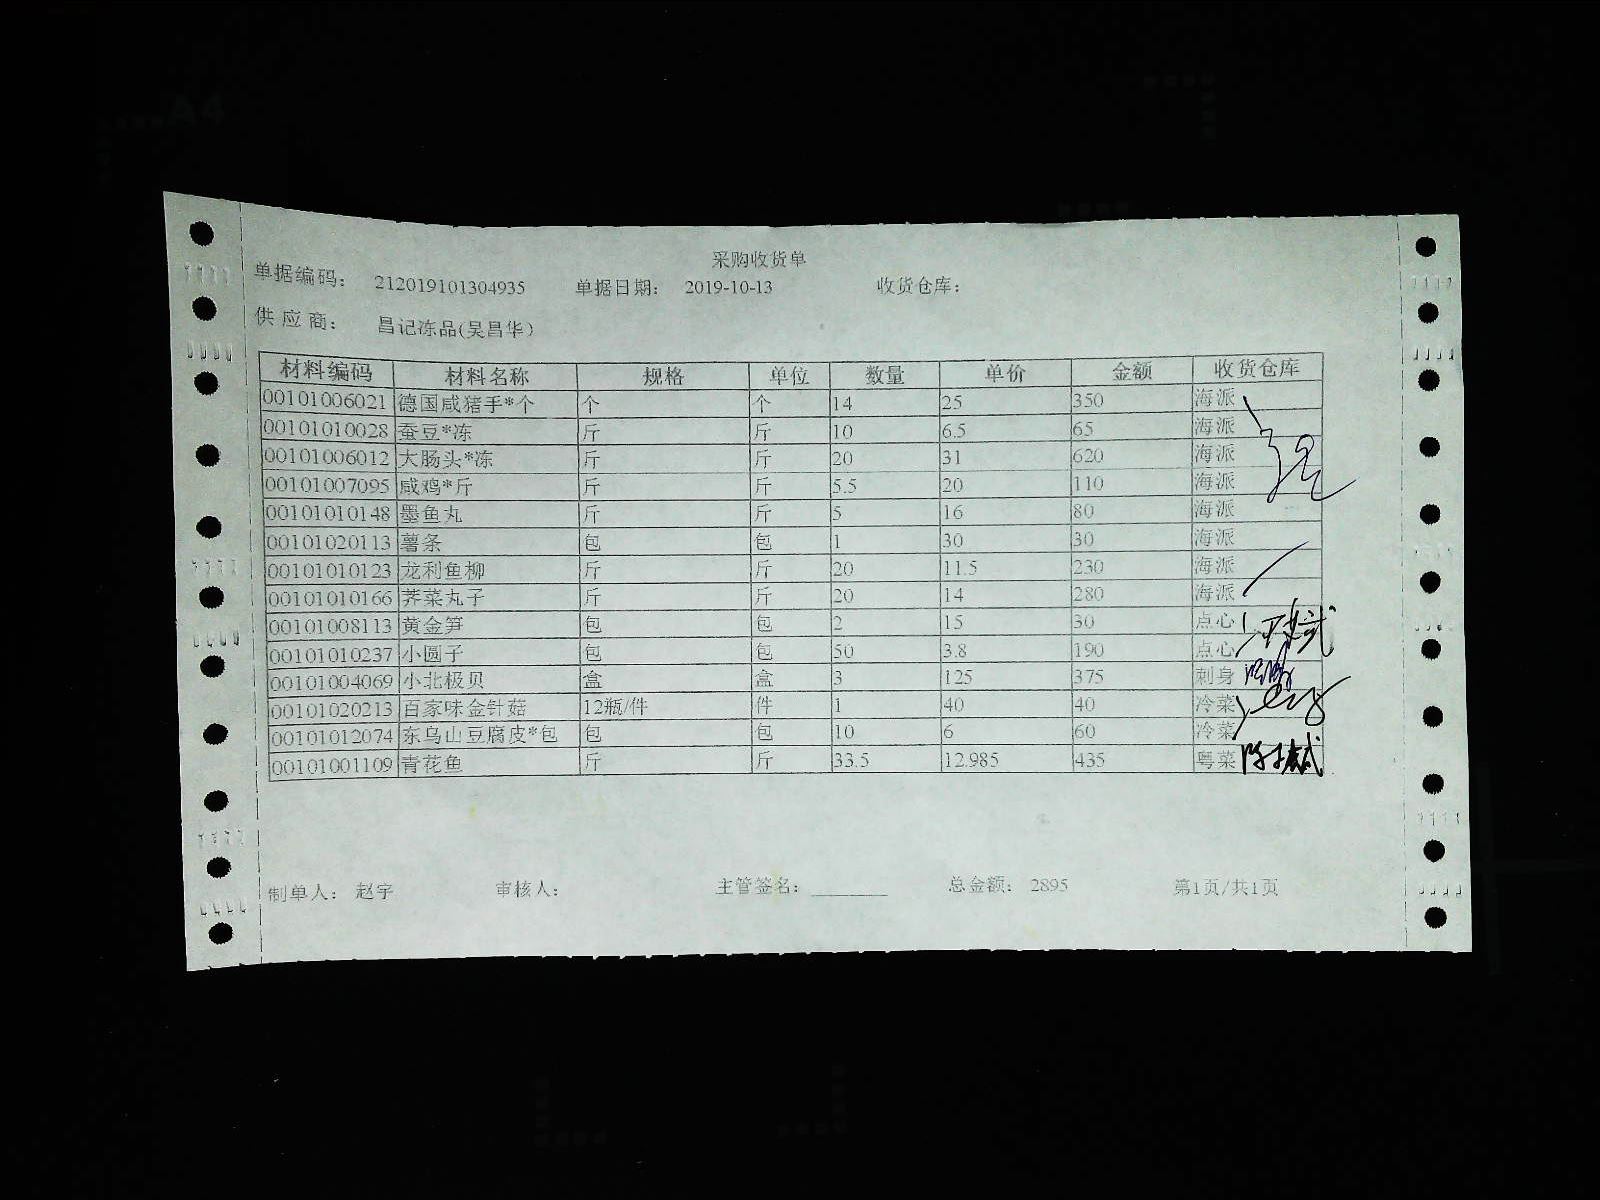 采购收货单
单据编码： 212019101304935 单据日期： 2019-10-13 收货仓库：
供 应 商： 昌记冻品(吴昌华)
材料编码 材料名称 规格 单位 数量 单价 金额 收货仓库
00101006021 德国咸猪手*个 个 个 14 25 350 海派
00101010028 蚕豆*冻 斤 斤 10 6.5 65 海派
00101006012 大肠头*冻 斤 斤 20 31 620 海派
00101007095 咸鸡*斤 斤 斤 5.5 20 110 海派
00101010148 墨鱼丸 斤 斤 5 16 80 海派
00101020113 薯条 包 包 1 30 30 海派
00101010123 龙利鱼柳 斤 斤 20 11.5 230 海派
00101010166 荠菜丸子 斤 斤 20 14 280 海派
00101008113 黄金笋 包 包 2 15 30 点心
00101010237 小圆子 包 包 50 3.8 190 点心
00101004069 小北极贝 盒 盒 3 125 375 刺身
00101020213 百家味金针菇 12瓶/件 件 1 40 40 冷菜
00101012074 东乌山豆腐皮*包 包 包 10 6 60 冷菜
00101001109 青花鱼 斤 斤 33.5 12.985 435 粤菜
制单人： 赵宇 审核人： 主管签名： 总金额： 2895 第1页/共1页